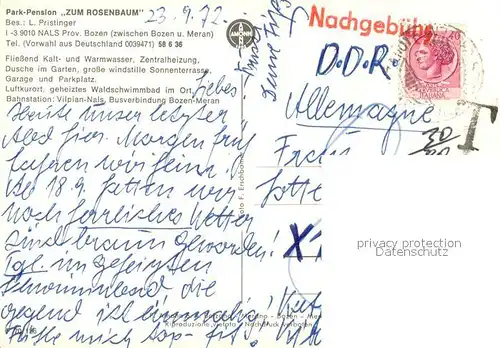 Park-Pension „ZUM ROSENBAUM"
Bes.: L. Pristinger
I -39010 NALS Prov. Bozen (zwischen Bozen u. Meran)
Tel. (Vorwahl aus Deutschland 0039471) 58 6 36
Fließend Kalt- und Warmwasser, Zentralheizung,
Dusche im Garten, große windstille Sonnenterrasse,
Garage und Parkplatz.
Luftkurort, geheiztes Waldschwimmbad im Ort.
Bahnstation: Vilpian-Nals, Busverbindung Bozen-Meran
23.9.72.
Liebes
Heute unser letzter
Abd hier. Morgen früh
fahren wir heim.
Bis 18.9. hatten wir
noch herrliches Wetter
sind braun geworden!
Tgl. im geheizten
Schwimmbad die
Gegend ist einmalig!
Fühle mich top-fit!
Deine
Nachgebühr
D.D.R.
Allemagne
T
30
Frau
Lotte
X
ITALIANA
privacy protection
Datenschutz
Riproduzione vietata - Nachdruck verboten